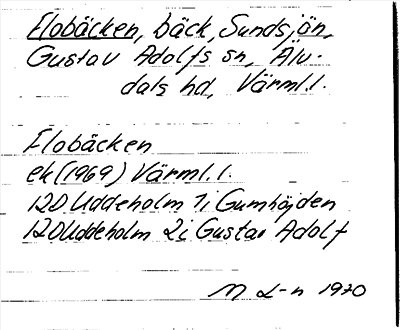 Flobäcken, bäck, Sundsjön,
Gustav Adolfs sn, Älv-
dals hd, Värml. l.
Flobäcken
ek (1969) Värml. l.
12D Uddeholm 1i Gumhöjden
12D Uddeholm 2i Gustav Adolf
M L-n 1970